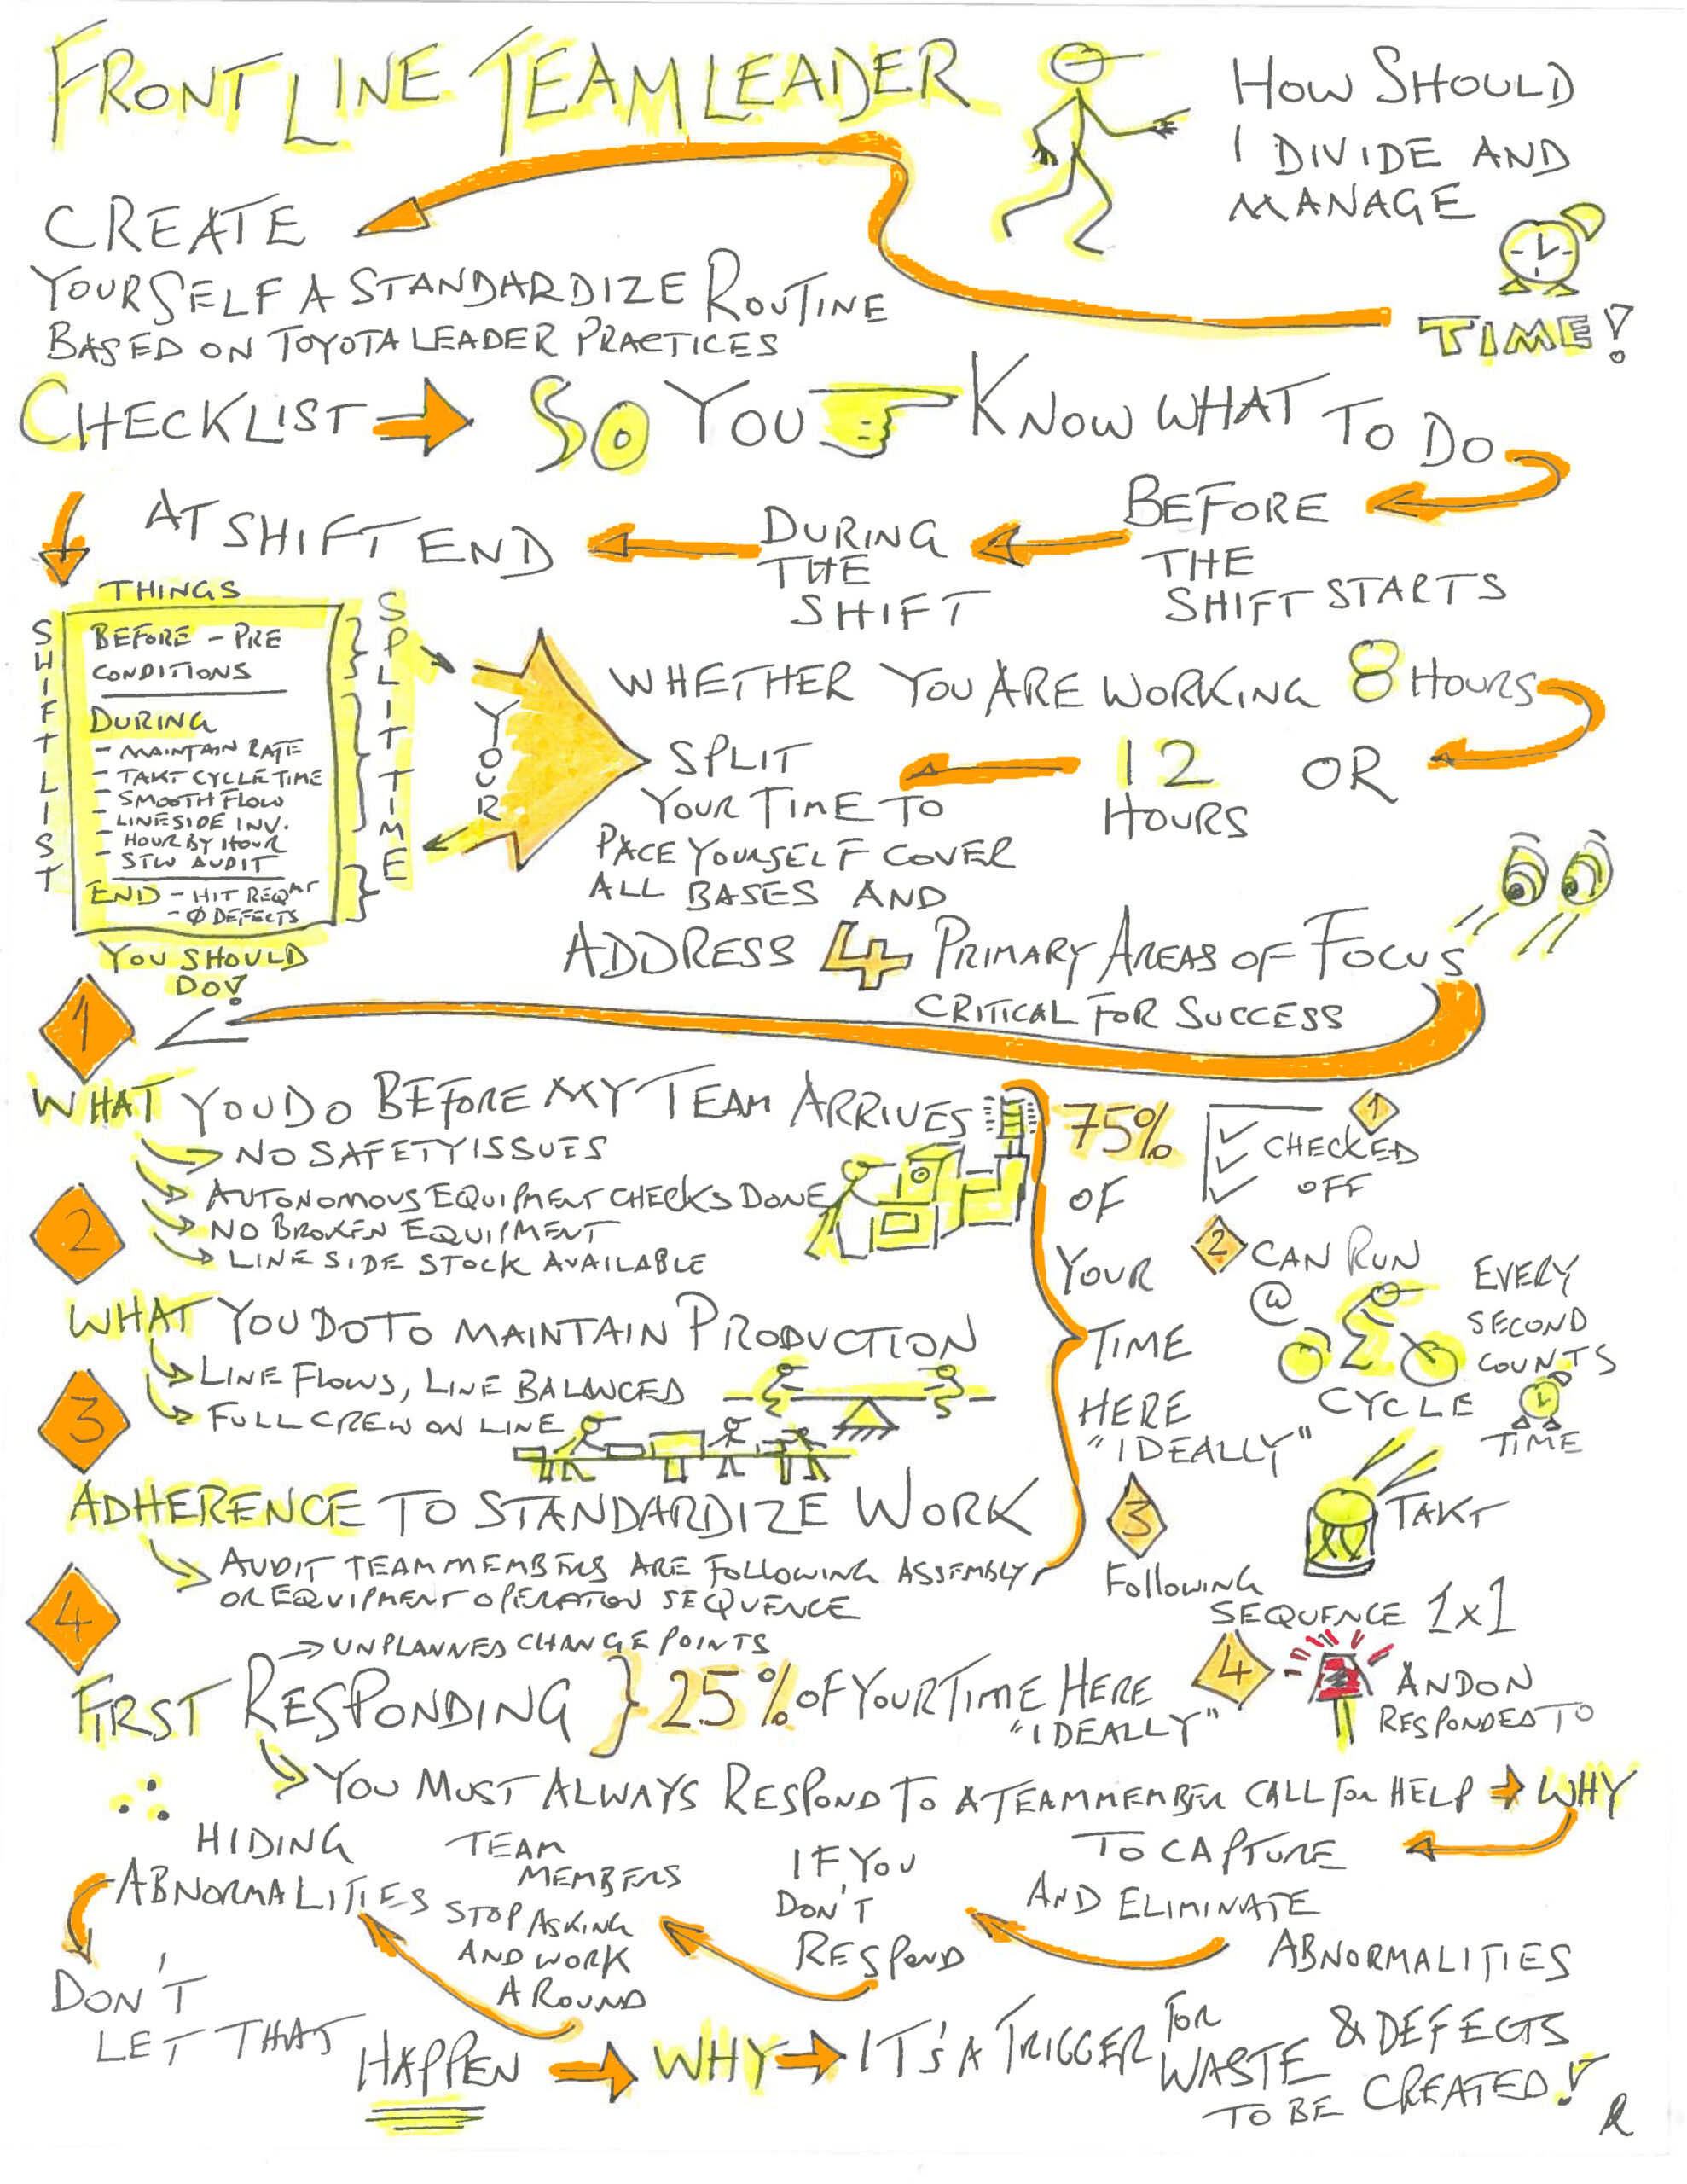 FRONT LINE TEAM LEADER
HOW SHOULD
I DIVIDE AND
MANAGE
TIME!
CREATE
YOURSELF A STANDARDIZE ROUTINE
BASED ON TOYOTA LEADER PRACTICES
CHECKLIST → SO YOU KNOW WHAT TO DO
BEFORE
THE
SHIFT STARTS
DURING
THE
SHIFT
AT SHIFT END
THINGS
SHIFT LIST
BEFORE - PRE
CONDITIONS
DURING
- MAINTAIN RATE
- TAKT CYCLE TIME
- SMOOTH FLOW
- LINESIDE INV.
- HOUR BY HOUR
- STW AUDIT
END - HIT REQMT
- Ø DEFECTS
YOU SHOULD
DO!
SPLIT TIME
YOUR
WHETHER YOU ARE WORKING 8 HOURS
OR
12
HOURS
SPLIT
YOUR TIME TO
PACE YOURSELF COVER
ALL BASES AND
ADDRESS 4 PRIMARY AREAS OF FOCUS
CRITICAL FOR SUCCESS
1
WHAT YOU DO BEFORE MY TEAM ARRIVES
→ NO SAFETY ISSUES
→ AUTONOMOUS EQUIPMENT CHECKS DONE
→ NO BROKEN EQUIPMENT
→ LINE SIDE STOCK AVAILABLE
2
WHAT YOU DO TO MAINTAIN PRODUCTION
→ LINE FLOWS, LINE BALANCED
→ FULL CREW ON LINE
3
ADHERENCE TO STANDARDIZE WORK
→ AUDIT TEAM MEMBERS ARE FOLLOWING ASSEMBLY
OR EQUIPMENT OPERATION SEQUENCE
75%
OF
YOUR
TIME
HERE
"IDEALLY"
1
CHECKED
OFF
2 CAN RUN
@
CYCLE
EVERY
SECOND
COUNTS
TIME
TAKT
3
FOLLOWING
SEQUENCE 1x1
4
→ UNPLANNED CHANGE POINTS
FIRST RESPONDING } 25% OF YOUR TIME HERE
"IDEALLY"
4
ANDON
RESPONDED TO
→ YOU MUST ALWAYS RESPOND TO A TEAM MEMBER CALL FOR HELP → WHY
TO CAPTURE
AND ELIMINATE
ABNORMALITIES
IF YOU
DON'T
RESPOND
TEAM
MEMBERS
STOP ASKING
AND WORK
AROUND
∴ HIDING
ABNORMALITIES
DON'T
LET THAT
HAPPEN → WHY → IT'S A TRIGGER FOR
WASTE & DEFECTS
TO BE CREATED!
R